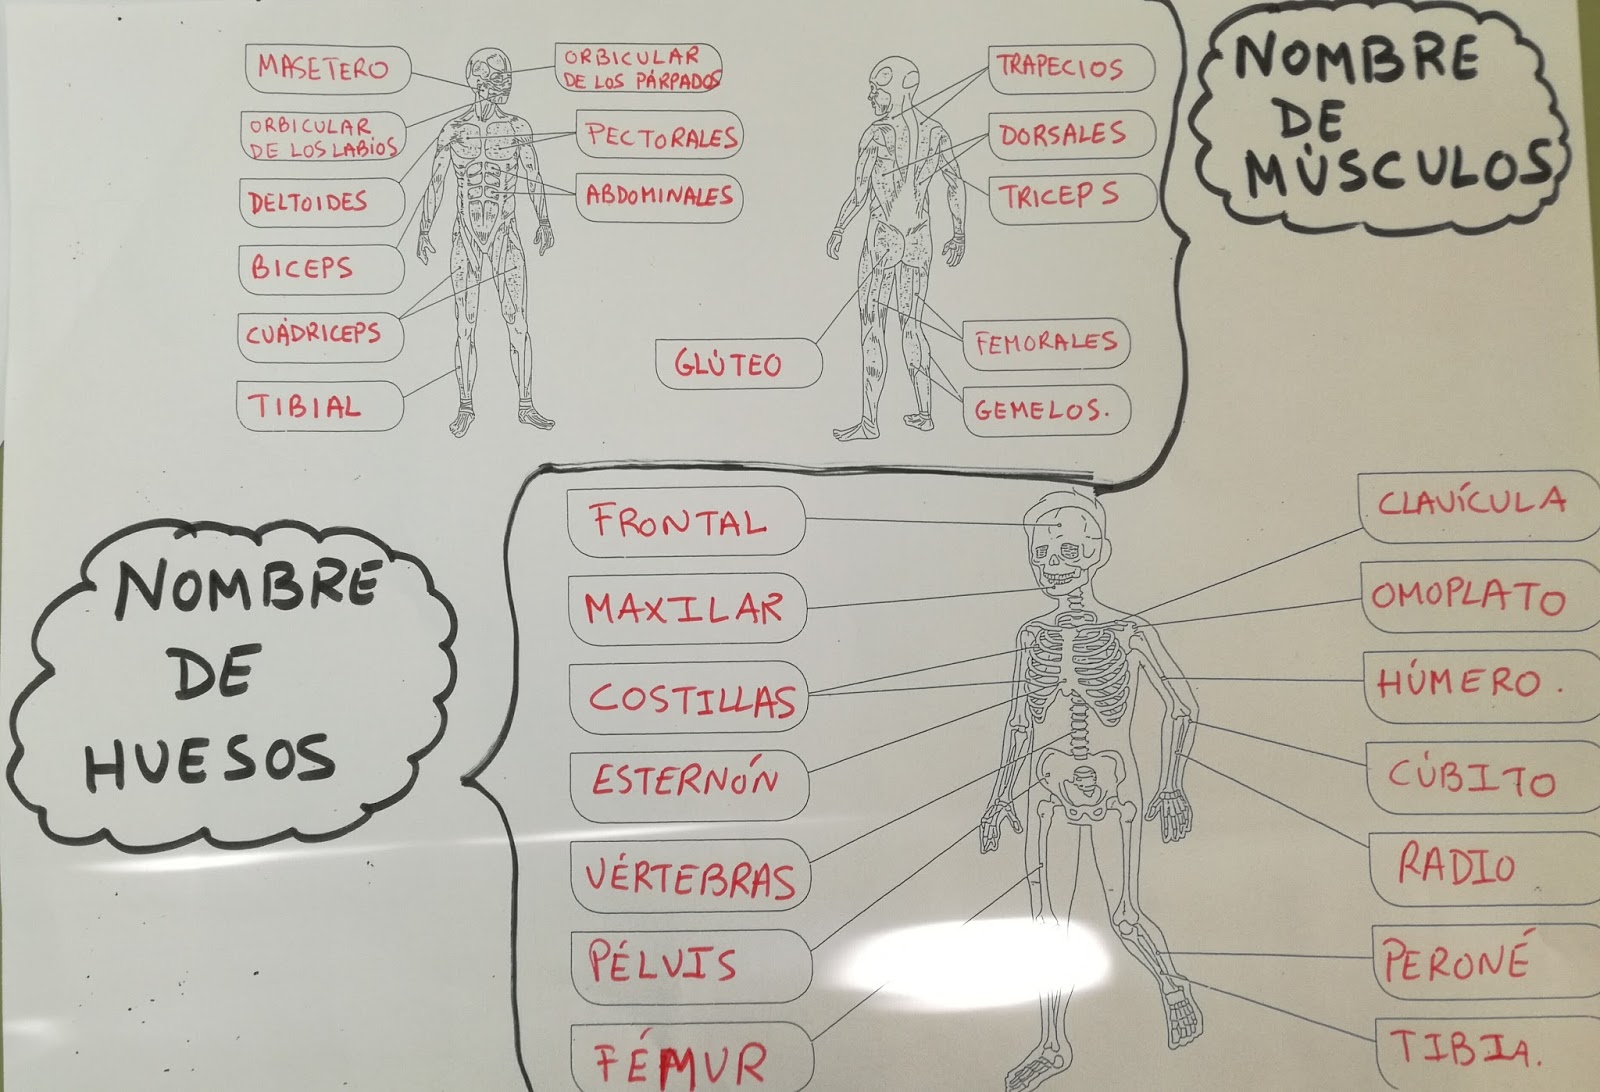 MASETERO
ORBICULAR
DE LOS LABIOS
DELTOIDES
BICEPS
CUÁDRICEPS
TIBIAL
ORBICULAR
DE LOS PÁRPADOS
PECTORALES
ABDOMINALES
GLÚTEO
TRAPECIOS
DORSALES
TRICEPS
FEMORALES
GEMELOS.
NOMBRE
DE
MÚSCULOS
NOMBRE
DE
HUESOS
FRONTAL
MAXILAR
COSTILLAS
ESTERNÓN
VÉRTEBRAS
PÉLVIS
FÉMUR
CLAVÍCULA
OMOPLATO
HÚMERO.
CÚBITO
RADIO
PERONÉ
TIBIA.